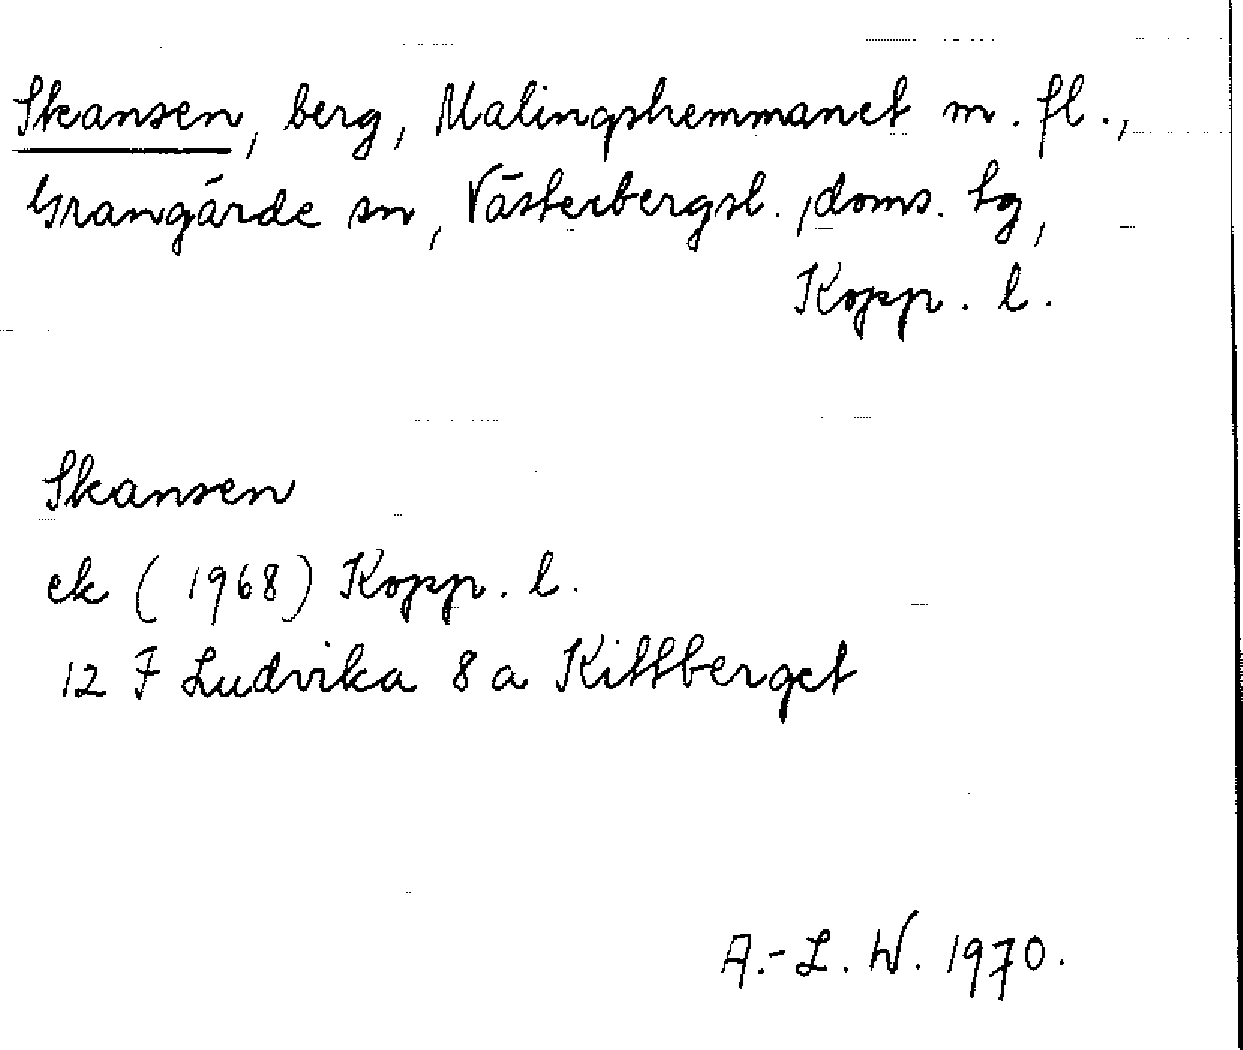 Skansen, berg, Malingshemmanet m. fl.,
Grangärde sn, Västerbergsl., doms. tg,
Kopp. l.
Skansen
ek (1968) Kopp. l.
12 F Ludvika 8 a Kittberget
A.-L. W. 1970.